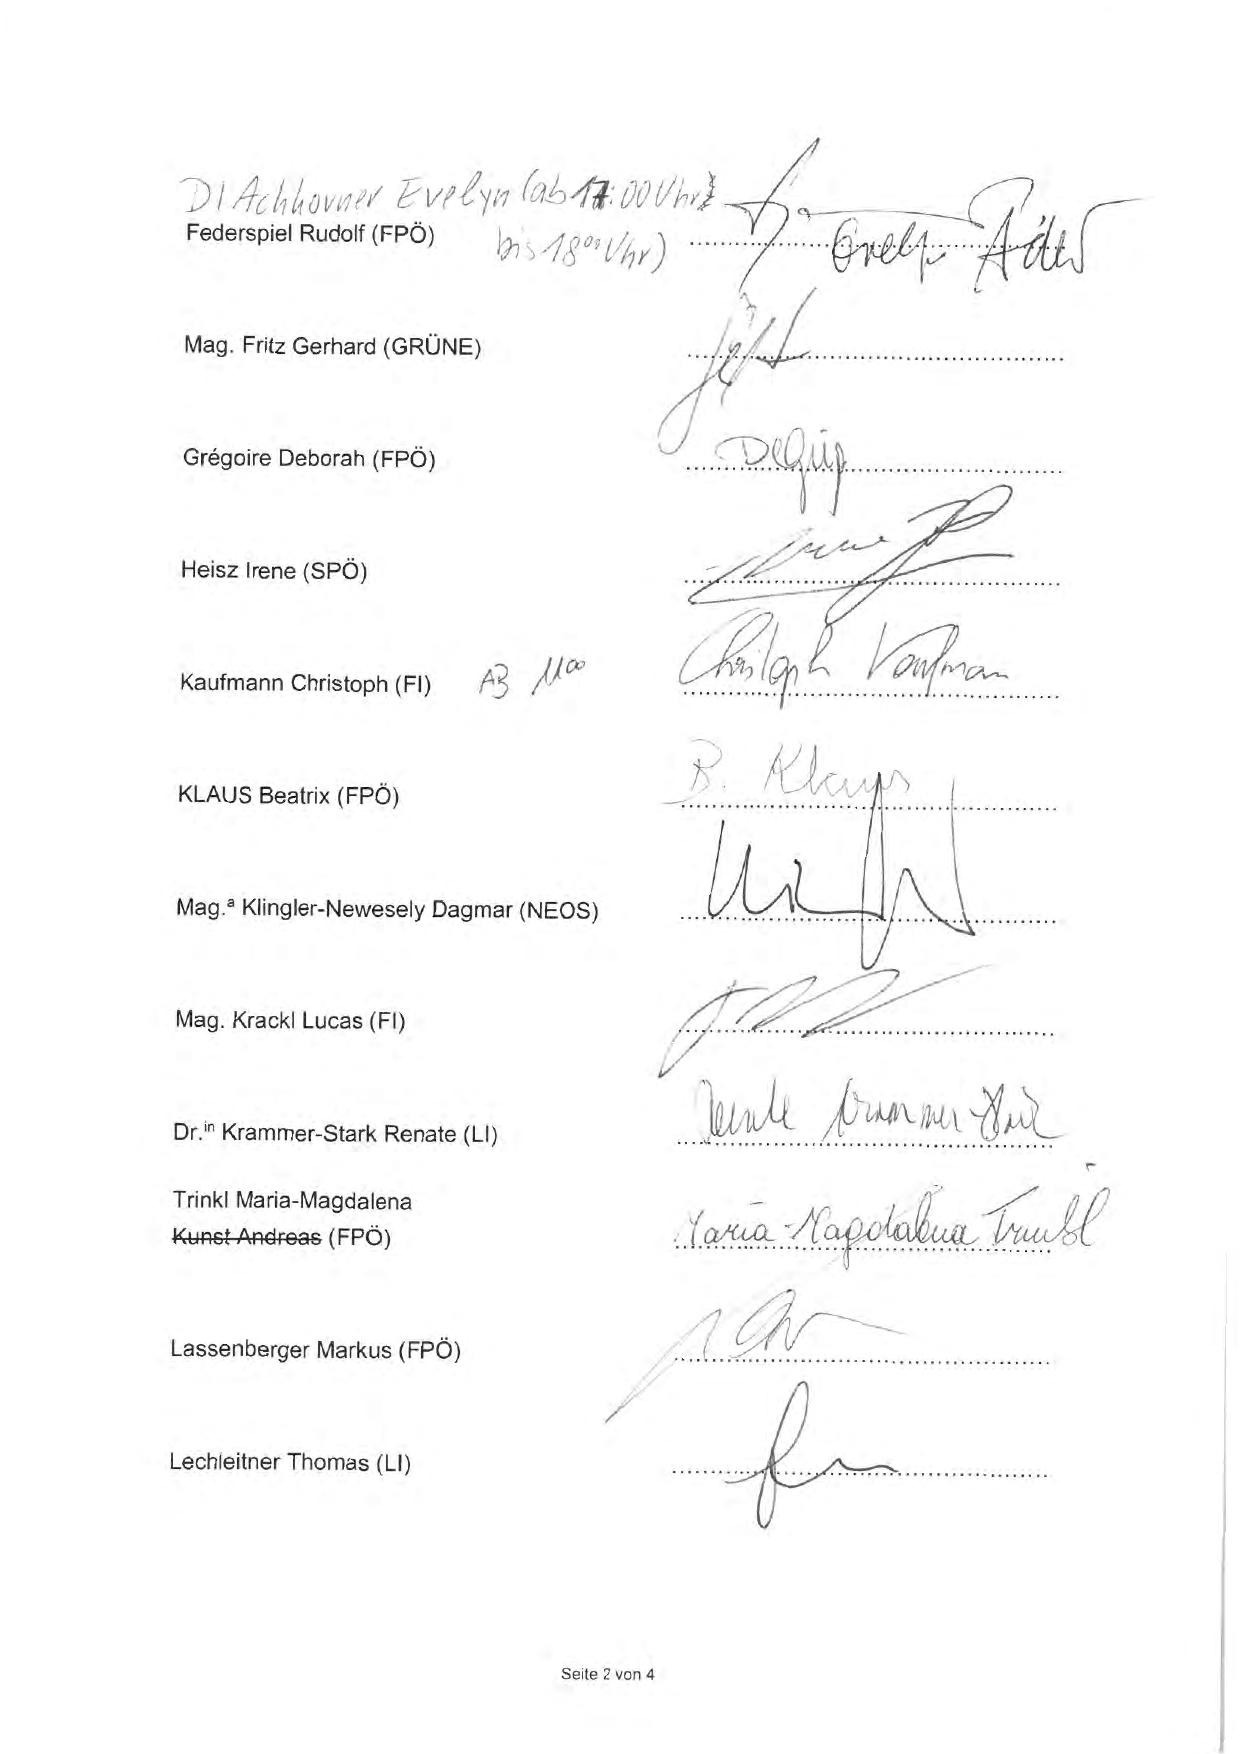 DI Achhorner Evelyn (ab 17:00 Uhr
Federspiel Rudolf (FPÖ) bis 18⁰⁰ Uhr)
Mag. Fritz Gerhard (GRÜNE)
Grégoire Deborah (FPÖ)
Heisz Irene (SPÖ)
Kaufmann Christoph (FI) AB 11⁰⁰ Christoph Kaufmann
KLAUS Beatrix (FPÖ) B. Klaus
Mag.ª Klingler-Newesely Dagmar (NEOS)
Mag. Krackl Lucas (FI)
Dr.ⁱⁿ Krammer-Stark Renate (LI) Renate Krammer-Stark
Trinkl Maria-Magdalena
Kunst Andreas (FPÖ) Maria-Magdalena Trinkl
Lassenberger Markus (FPÖ)
Lechleitner Thomas (LI)
Seite 2 von 4